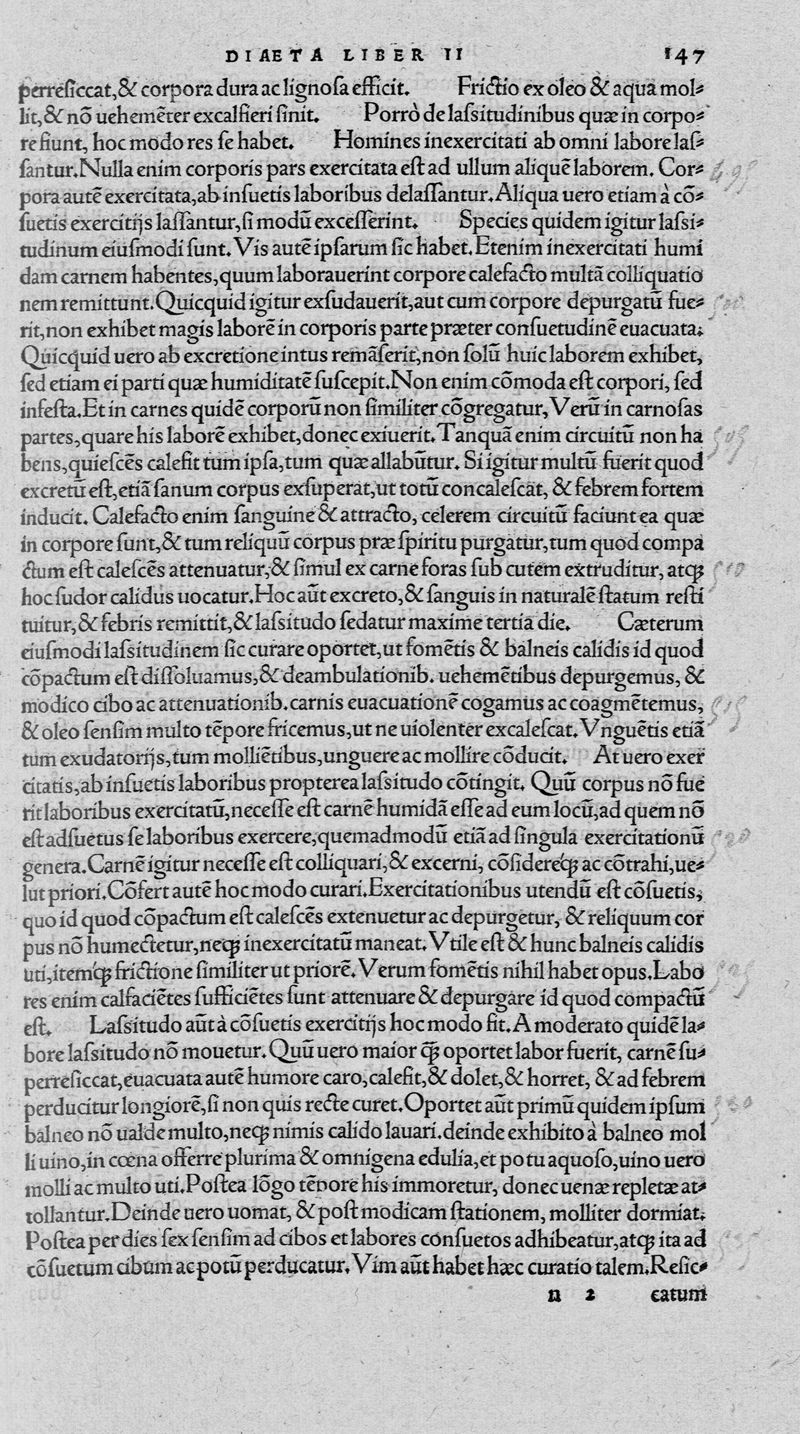 DIAETA LIBER II 147
perresiccat,& corpora dura ac lignosa efficit. Frictio ex oleo & aqua mol⸗
lit,& nõ uehemẽter excalfieri sinit. Porrò de lassitudinibus quæ in corpo⸗
re fiunt, hoc modo res se habet. Homines inexercitati ab omni labore las⸗
santur.Nulla enim corporis pars exercitata est ad ullum aliquẽ laborem. Cor⸗
pora autẽ exercitata,ab insuetis laboribus delassantur.Aliqua uero etiam à cõ⸗
suetis exercitijs lassantur,si modũ excesserint. Species quidem igitur lassi⸗
tudinum eiusmodi sunt.Vis autẽ ipsarum sic habet.Etenim inexercitati humi
dam carnem habentes,quum laborauerint corpore calefacto multã colliquatio
nem remittunt.Quicquid igitur exsudauerit,aut cum corpore depurgatũ fue⸗
rit,non exhibet magis laborẽ in corporis parte præter consuetudinẽ euacuata.
Quicquid uero ab excretione intus remãserit,non solũ huic laborem exhibet,
sed etiam ei parti quæ humiditatẽ suscepit.Non enim cõmoda est corpori, sed
infesta.Et in carnes quidẽ corporũ non similiter cõgregatur,Verũ in carnosas
partes,quare his laborẽ exhibet,donec exiuerit.Tanquã enim circuitũ non ha
bens,quiescẽs calefit tum ipsa,tum quæ allabũtur. Si igitur multũ fuerit quod
excretũ est,etiã sanum corpus exsuperat,ut totũ concalescat, & febrem fortem
inducit. Calefacto enim sanguine & attracto, celerem circuitũ faciunt ea quæ
in corpore sunt,& tum reliquũ corpus præ spiritu purgatur,tum quod compa
ctum est calescẽs attenuatur,& simul ex carne foras sub cutem extruditur, atqꝫ
hoc sudor calidus uocatur.Hoc aũt excreto,& sanguis in naturalẽ statum resti
tuitur,& febris remittit,& lassitudo sedatur maxime tertia die. Cæterum
eiusmodi lassitudinem sic curare oportet,ut fomẽtis & balneis calidis id quod
cõpactum est dissoluamus,& deambulationib. uehemẽtibus depurgemus, &
modico cibo ac attenuationib.carnis euacuationẽ cogamus ac coagmẽtemus,
& oleo sensim multo tẽpore fricemus,ut ne uiolenter excalescat.Vnguẽtis etiã
tum exudatorijs,tum molliẽtibus,unguere ac mollire cõducit. At uero exer
citatis,ab insuetis laboribus propterea lassitudo cõtingit. Quũ corpus nõ fue
rit laboribus exercitatũ,necesse est carnẽ humidã esse ad eum locũ,ad quem nõ
est adsuetus se laboribus exercere,quemadmodũ etiã ad singula exercitationũ
genera.Carnẽ igitur necesse est colliquari,& excerni, cõsidereqꝫ ac cõtrahi,ue⸗
lut priori.Cõfert autẽ hoc modo curari.Exercitationibus utendũ est cõsuetis,
quo id quod cõpactum est calescẽs extenuetur ac depurgetur, & reliquum cor
pus nõ humectetur,neqꝫ inexercitatũ maneat.Vtile est & hunc balneis calidis
uti,itemqꝫ frictione similiter ut priorẽ.Verum fomẽtis nihil habet opus.Labo
res enim calfaciẽtes sufficiẽtes sunt attenuare & depurgare id quod compactũ
est. Lassitudo aũt à cõsuetis exercitijs hoc modo fit.A moderato quidẽ la⸗
bore lassitudo nõ mouetur.Quũ uero maior qꝫ̃ oportet labor fuerit, carnẽ su⸗
perresiccat,euacuata autẽ humore caro,calefit,& dolet,& horret, & ad febrem
perducitur longiorẽ,si non quis recte curet.Oportet aũt primũ quidem ipsum
balneo nõ ualde multo,neqꝫ nimis calido lauari.deinde exhibito à balneo mol
li uino,in cœna offerre plurima & omnigena edulia,et potu aquoso,uino uero
molli ac multo uti.Postea lõgo tẽpore his immoretur, donec uenæ repletæ at⸗
tollantur.Deinde uero uomat, & post modicam stationem, molliter dormiat.
Postea per dies sex sensim ad cibos et labores consuetos adhibeatur,atqꝫ ita ad
cõsuetum cibum ac potũ perducatur.Vim aũt habet hæc curatio talem.Resic⸗
n 2 catum